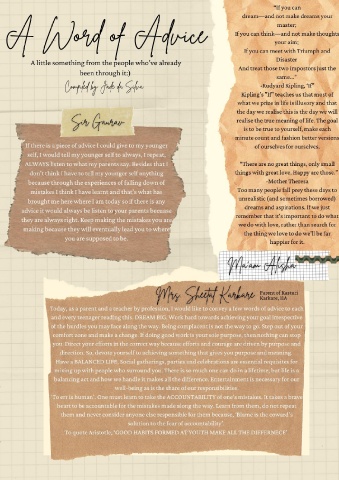 A Word of Advice
A little something from the people who've already
been through it:)
Compiled by Jude de Silva
Sir Gaurav
If there is a piece of advice I could give to my younger
self, I would tell my younger self to always, I repeat,
ALWAYS listen to what my parents say. Besides that I
don't think I have to tell my younger self anything
because through the experiences of falling down of
mistakes I think I have learnt and that's what has
brought me here where I am today so if there is any
advice it would always be listen to your parents because
they are always right. Keep making the mistakes you are
making because they will eventually lead you to where
you are supposed to be.
"If you can
dream—and not make dreams your
master;
If you can think—and not make thoughts
your aim;
If you can meet with Triumph and
Disaster
And treat those two impostors just the
same..."
-Rudyard Kipling, "If"
Kipling's "If" teaches us that most of
what we prize in life is illusory and that
the day we realise this is the day we will
realise the true meaning of life. The goal
is to be true to yourself, make each
minute count and fashion better versions
of ourselves for ourselves.
"There are no great things, only small
things with great love. Happy are those."
-Mother Theresa
Too many people fall prey these days to
unrealistic (and sometimes borrowed)
dreams and aspirations. If we just
remember that it's important to do what
we do with love, rather than search for
the thing we love to do we'll be far
happier for it.
Ma'am Alisha
Mrs Sheetal Karkare
Parent of Kastuti
Karkare, 11A
Today, as a parent and a teacher by profession, I would like to convey a few words of advice to each
and every teenager reading this. DREAM BIG. Work hard towards achieving your goal irrespective
of the hurdles you may face along the way. Being complacent is not the way to go. Step out of your
comfort zone and make a change. If doing good work is your sole purpose, then nothing can stop
you. Direct your efforts in the correct way because efforts and courage are driven by purpose and
direction. So, devote yourself to achieving something that gives you purpose and meaning.
Have a BALANCED LIFE. Social gatherings, parties and celebrations are essential requisites for
mixing up with people who surround you. There is so much one can do in a lifetime, but life is a
balancing act and how we handle it makes all the difference. Entertainment is necessary for our
well-being as is the share of our responsibilities.
'To err is human'. One must learn to take the ACCOUNTABILITY of one's mistakes. It takes a brave
heart to be accountable for the mistakes made along the way. Learn from them, do not repeat
them and never consider anyone else responsible for them because, 'Blame is the coward's
solution to the fear of accountability'.
To quote Aristotle, 'GOOD HABITS FORMED AT YOUTH MAKE ALL THE DIFFERENCE'